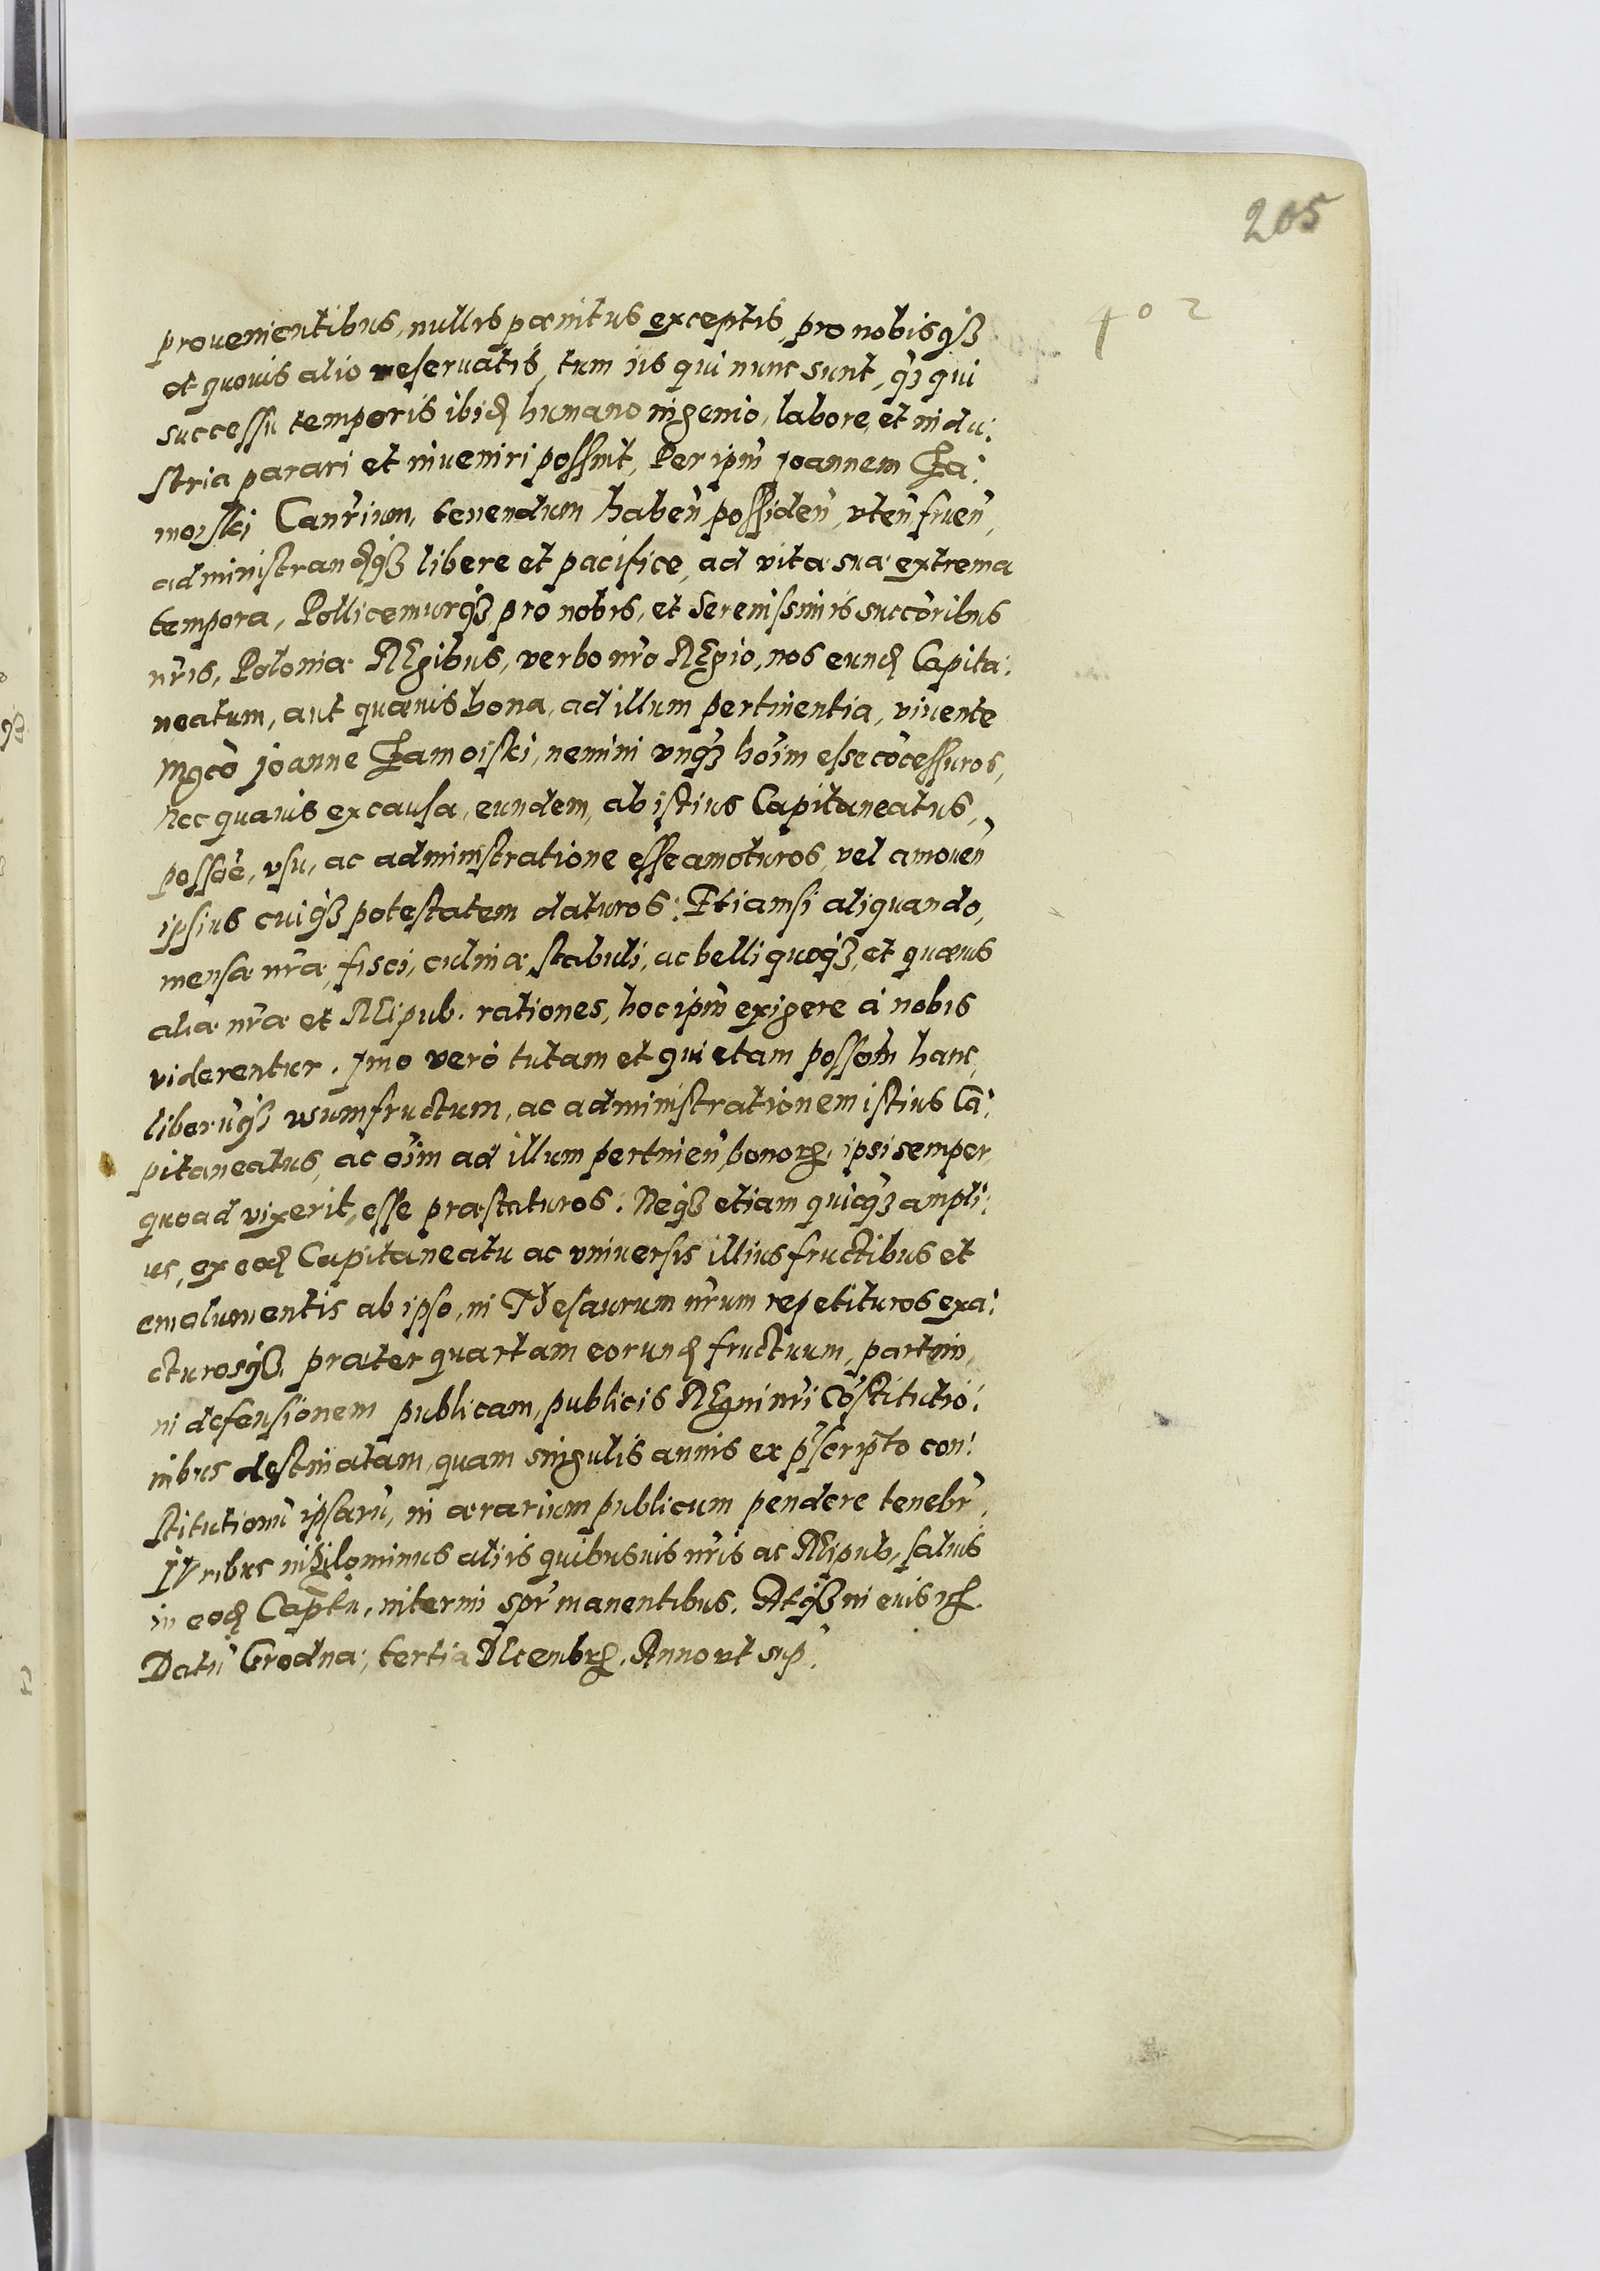 205
402
prouenientibus, nullis pœnitus exceptis, pro nobisq́ꝫ
et quouis alio reseruatis, tum iis qui nunc sunt, q́ꝫ qui
successu temporis ibid humano ingenio, labore, et indu:
stria parari et inueniri possint, Per ipm̃ Joannem Za:
moiski Canr̃ium, tenendum habeñ possideñ, vteñ frueñ,
administrandq́ꝫ libere et pacifice, ad vitæ suæ extrema
tempora, Pollicemurq́ꝫ pro nobis, et Serenissimis succõribus
nr̃is, Poloniæ REgibus, verbo nr̃o REgio, nos eund Capita:
neatum, aut quæuis bona, ad illum pertinentia, viuente
Mgco Joanne Zamoiski, nemini vnq́ꝫ hoĩm esse cõcessuros,
Nec quauis ex causa, eundem, ab istius Capitaneatus,
possõe, vsu, ac administratione esse amoturos, vel amoueñ
ipsius cuiq́ꝫ potestatem daturos: Etiamsi aliquando,
mensæ nr̃æ, fisci, culinæ, stabuli, ac belli quoq́ꝫ, et quæuis
aliæ nr̃æ et REipub. rationes, hoc ipm̃ exigere à nobis
viderentur. Imo verò tutam et quietam possõm hanc,
liberũq́ꝫ vsumfructum, ac administrationem istius Ca:
pitaneatus, ac oĩm ad illum pertineñ bonoꝝ, ipsi semper
quoad vixerit, esse præstaturos. Neq́ꝫ etiam quicq́ꝫ ampli:
us, ex eod Capitaneatu ac vniuersis illius fructibus et
emolumentis ab ipso, in Thesaurum nr̃um repetituros exa:
cturosq́ꝫ præter quartam eorund fructuum, partem,
in defensionem publicam, publicis REgni nr̃i Cõstitutio:
nibus destinatam, quam singulis annis ex p̃scripto con:
stitutionũ ipsarũ, in ærarium publicum pendere tenebr̃.
IVribus nihilominus aliis quibusuis nr̃is ac REipub, saluis
in eod Captu, interim spr̃ manentibus. Atq́ꝫ in euis ꝛꝭ
Datũ Grodnæ, tertia DEcenbꝝ. Anno vt sup.